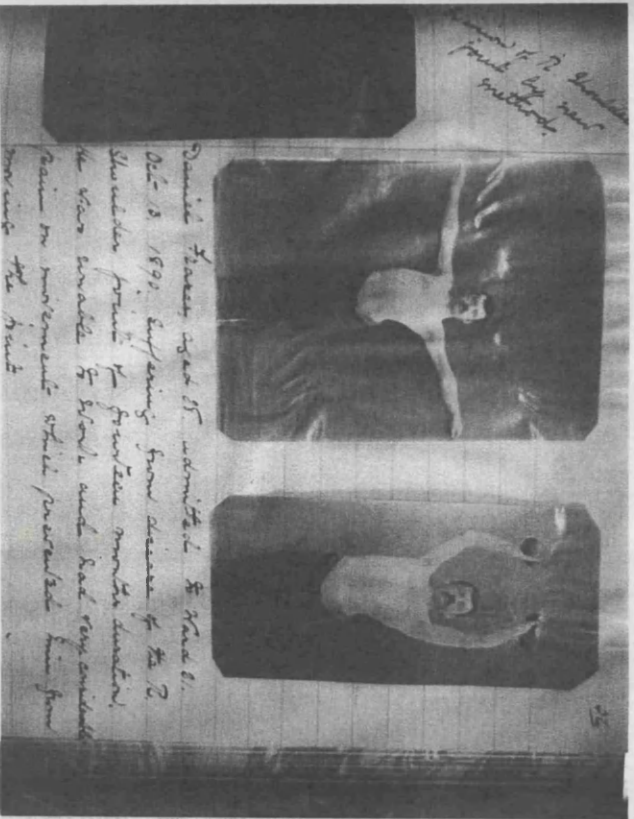 R Shoulder
joint by new
method.
Daniel Fraser, aged 25 admitted to Ward
Oct 13 1890. Suffering from disease of the R.
Shoulder joint of fourteen months duration.
He was unable to work and had very considerable
pain on movement which prevented him from
moving the joint